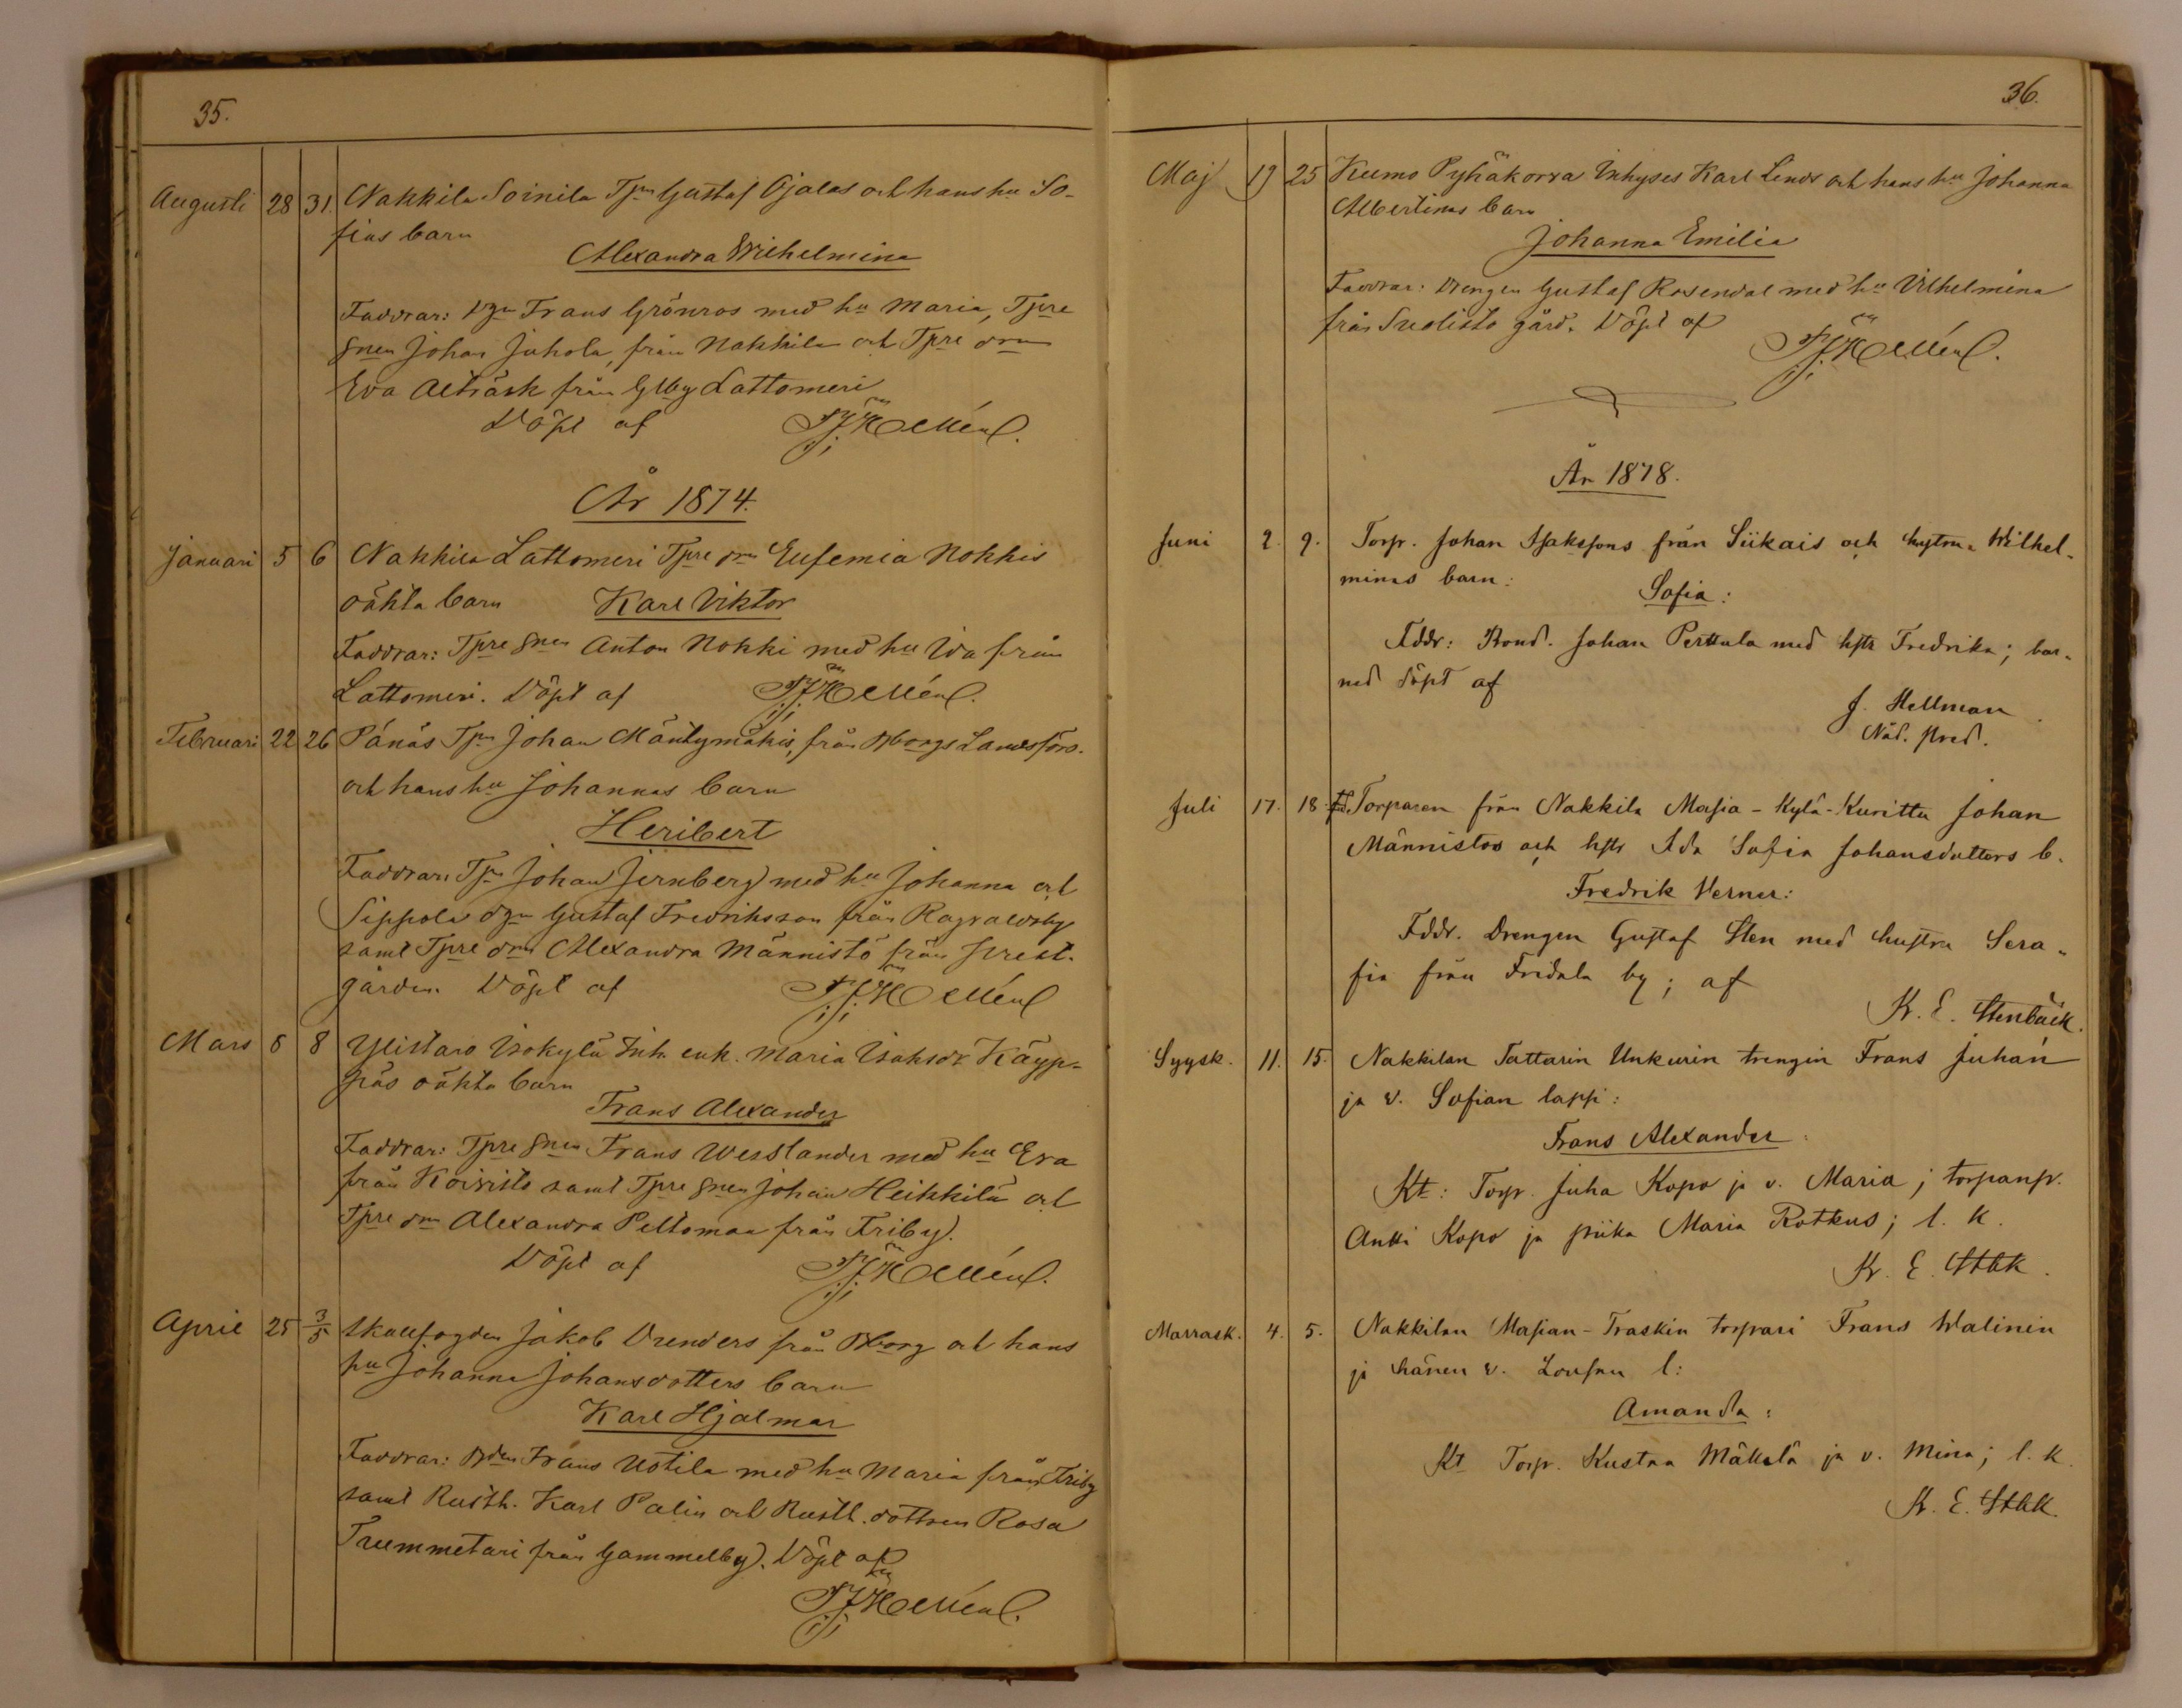 35.
Augusti 28 31. Nakkila Soinila Tpn Gustaf Ojalas och hans hu So-
fias barn
Alexandra Wilhelmina
Faddrar: Dgn Frans Grönros med hu Maria, Tpre
gnen Johan Juhola, från Nakkila och Tpre drn
Eva Alträsk från Glby Lattomeri
Döpt af
År 1874.
Januari 5 6 Nakkila Lattomeri Tpre drn Eufemia Nokkis
oäkta barn Karl Viktor
Faddrar: Tpre gnen Anton Nokki med hu Ida från
Lattomeri. Döpt af
Februari 22 26 Panäs Tpn Johan Mäntymäkis, från Bborgs Landsförs.
och hans hu Johannas barn
Heribert
Faddrar: Tpn Johan Jernberg med hu Johanna och
Sippola dgn Gustaf Fredriksson från Ragvaldsby
samt Tpre drn Alexandra Männistö från Prest-
gården Döpt af
Mars 6 8 Ylistaro Isokylä Inh. enk. Maria Isaksdr Käyp-
päs oäkta barn
Frans Alexander
Faddrar: Tpre gnen Frans Wesslander med hu Eva
från Koivisto samt Tpre gnen Johan Heikkilä och
Tpre drn Alexandra Peltomaa från Friby.
Döpt af
April 25 3/5 Skallfogden Jakob Drenders från Bborg och hans
hu Johanna Johansdotters barn
Karl Hjalmar
Faddrar: Bden Frans Uotila med hu Maria från Friby
samt Rusth. Karl Palin och Rusth. dottren Rosa
Trummetari från Gammelby. Döpt af
36.
Maj 19 25 Kumo Pyhäkorva Inhyses Karl Lends och hans hu Johanna
Albertinas barn
Johanna Emilia
Faddrar: Drengen Gustaf Rosendal med hu Vilhelmina
från Suolisto gård. Döpt af
År 1878.
Juni 2. 9. Torp. Johan Isakssons från Siikais och hustrus Wilhel-
minas barn:
Sofia:
Fddr: Bond. Johan Perttula med hstr Fredrika; bar-
net döpt af
J. Hellman
Nåd. pred.
Juli 17. 18. Torparen från Nakkila Masia-Kylä-Kurittu Johan
Männistös och hstr Ida Sofia Johansdotters b.
Fredrik Verner:
Fddr. Drengen Gustaf Sten med hustru Sera-
fia från Fridala by; af
K. E. Stenbäck.
Syysk. 11. 15. Nakkilan Tattarin Unkurin trengin Frans Juhan
ja v. Sofian lapsi:
Frans Alexander:
Kt: Torp. Juha Kopo ja v. Maria; torpanp.
Antti Kopo ja piika Maria Rotkus; l. k.
K. E. Stbk.
Marrask. 4. 5. Nakkilan Masian-Traskin torpari Frans Walinin
ja hänen v. Lovisan l:
Amanda:
Kt Torp. Kustaa Mäkelä ja v. Mina; l. k.
K. E. Stbk.